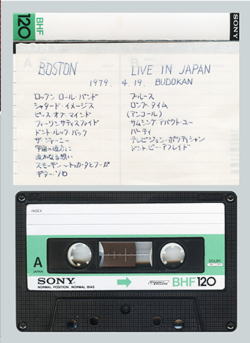 BHF
120
BOSTON LIVE IN JAPAN
1979. 4. 19. BUDOKAN
ロックン ロール・バンド
シャタード イメージス
ピース・オブ マインド
フィーリン サティスファイド
ドント・ルック バック
ザ・ジャーニー
宇宙の彼方に
遥かなる想い
スモーキン〜トッカータとフーガ
ギター・ソロ
ブルース
ロング タイム
(アンコール)
サムシング アバウト ユー
パーティ
テレビジョン・ポリティシャン
ドント・ビー アフレイド
INDEX
A
JAPAN
SONY
NORMAL POSITION. NORMAL BIAS
BHF120